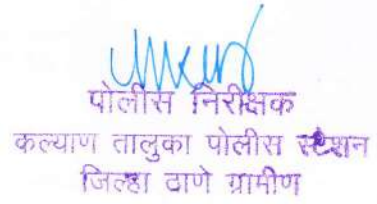 पोलीस निरीक्षक
कल्याण तालुका पोलीस स्टेशन
जिल्हा ठाणे ग्रामीण